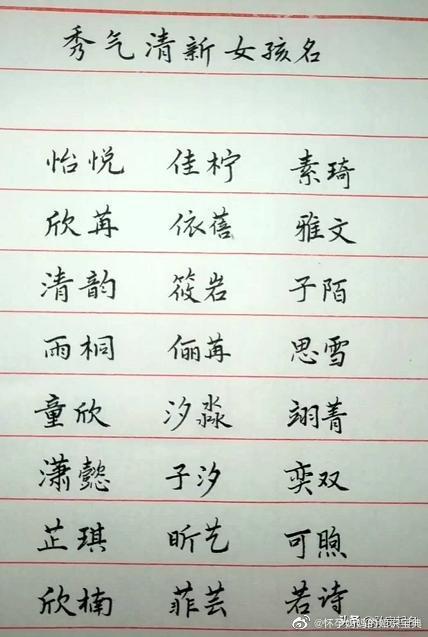 秀气清新女孩名
怡悦 佳柠 素琦
欣苒 依蓓 雅文
清韵 筱岩 子陌
雨桐 俪苒 思雪
童欣 汐淼 翊菁
潇懿 子汐 奕双
芷琪 昕艺 可煦
欣楠 菲芸 若诗